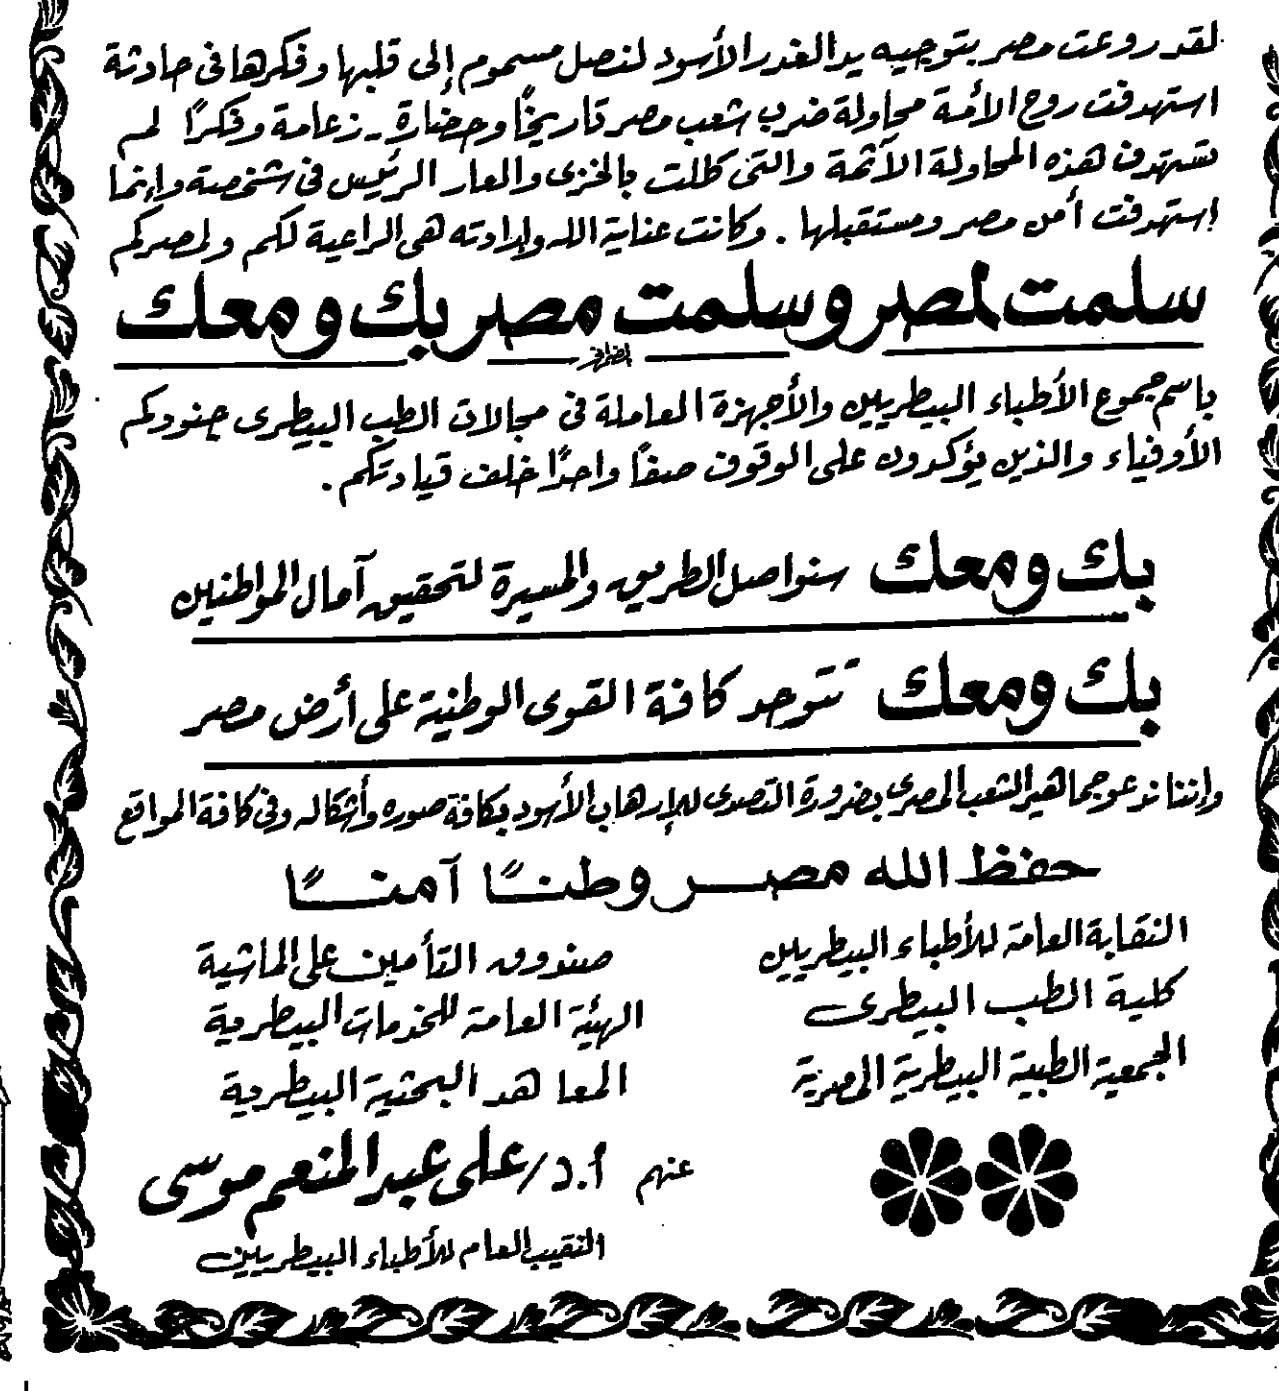 لقد روعت مصر بتوجيه يد الغدر الأسود لنصل مسموم إلى قلبها وفكرها فى حادثة
استهدفت روح الأمة محاولة ضرب شعب مصر تاريخًا وحضارة ـ زعامة وفكرًا لم
تستهدف هذه المحاولة الآثمة والتى كللت بالخزى والعار الرئيس فى شخصه وإنما
إستهدفت أمن مصر ومستقبلها . وكانت عناية الله وإرادته هى الراعية لكم ولمصركم
سلمت لمصر وسلمت مصر بك ومعك
باسم جموع الأطباء البيطريين والأجهزة العاملة فى مجالات الطب البيطرى جنودكم
الأوفياء والذين يؤكدون على الوقوف صفًا واحدًا خلف قيادتكم .
بك ومعك سنواصل الطريق والمسيرة لتحقيق آمال المواطنين
بك ومعك تتوحد كافة القوى الوطنية على أرض مصر
وإننا ندعو جماهير الشعب المصرى بضرورة التصدى للإرهاب الأسود بكافة صوره وأشكاله وفى كافة المواقع
حفظ الله مصر وطنًا آمنًا
النقابة العامة للأطباء البيطريين
كلية الطب البيطرى
الجمعية الطبية البيطرية المصرية
صندوق التأمين على الماشية
الهيئة العامة للخدمات البيطرية
المعاهد البحثية البيطرية
عنهم أ.د/على عبد المنعم موسى
النقيب العام للأطباء البيطريين